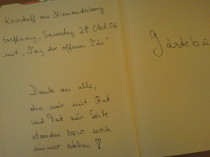 Eröffnung, Samstag 28 Okt. 06
mit „Tag der offenen Tür"
Danke an alle,
die mir mit Rat
und Tat zur Seite
standen bzw. noch
immer stehen!
Gästebu